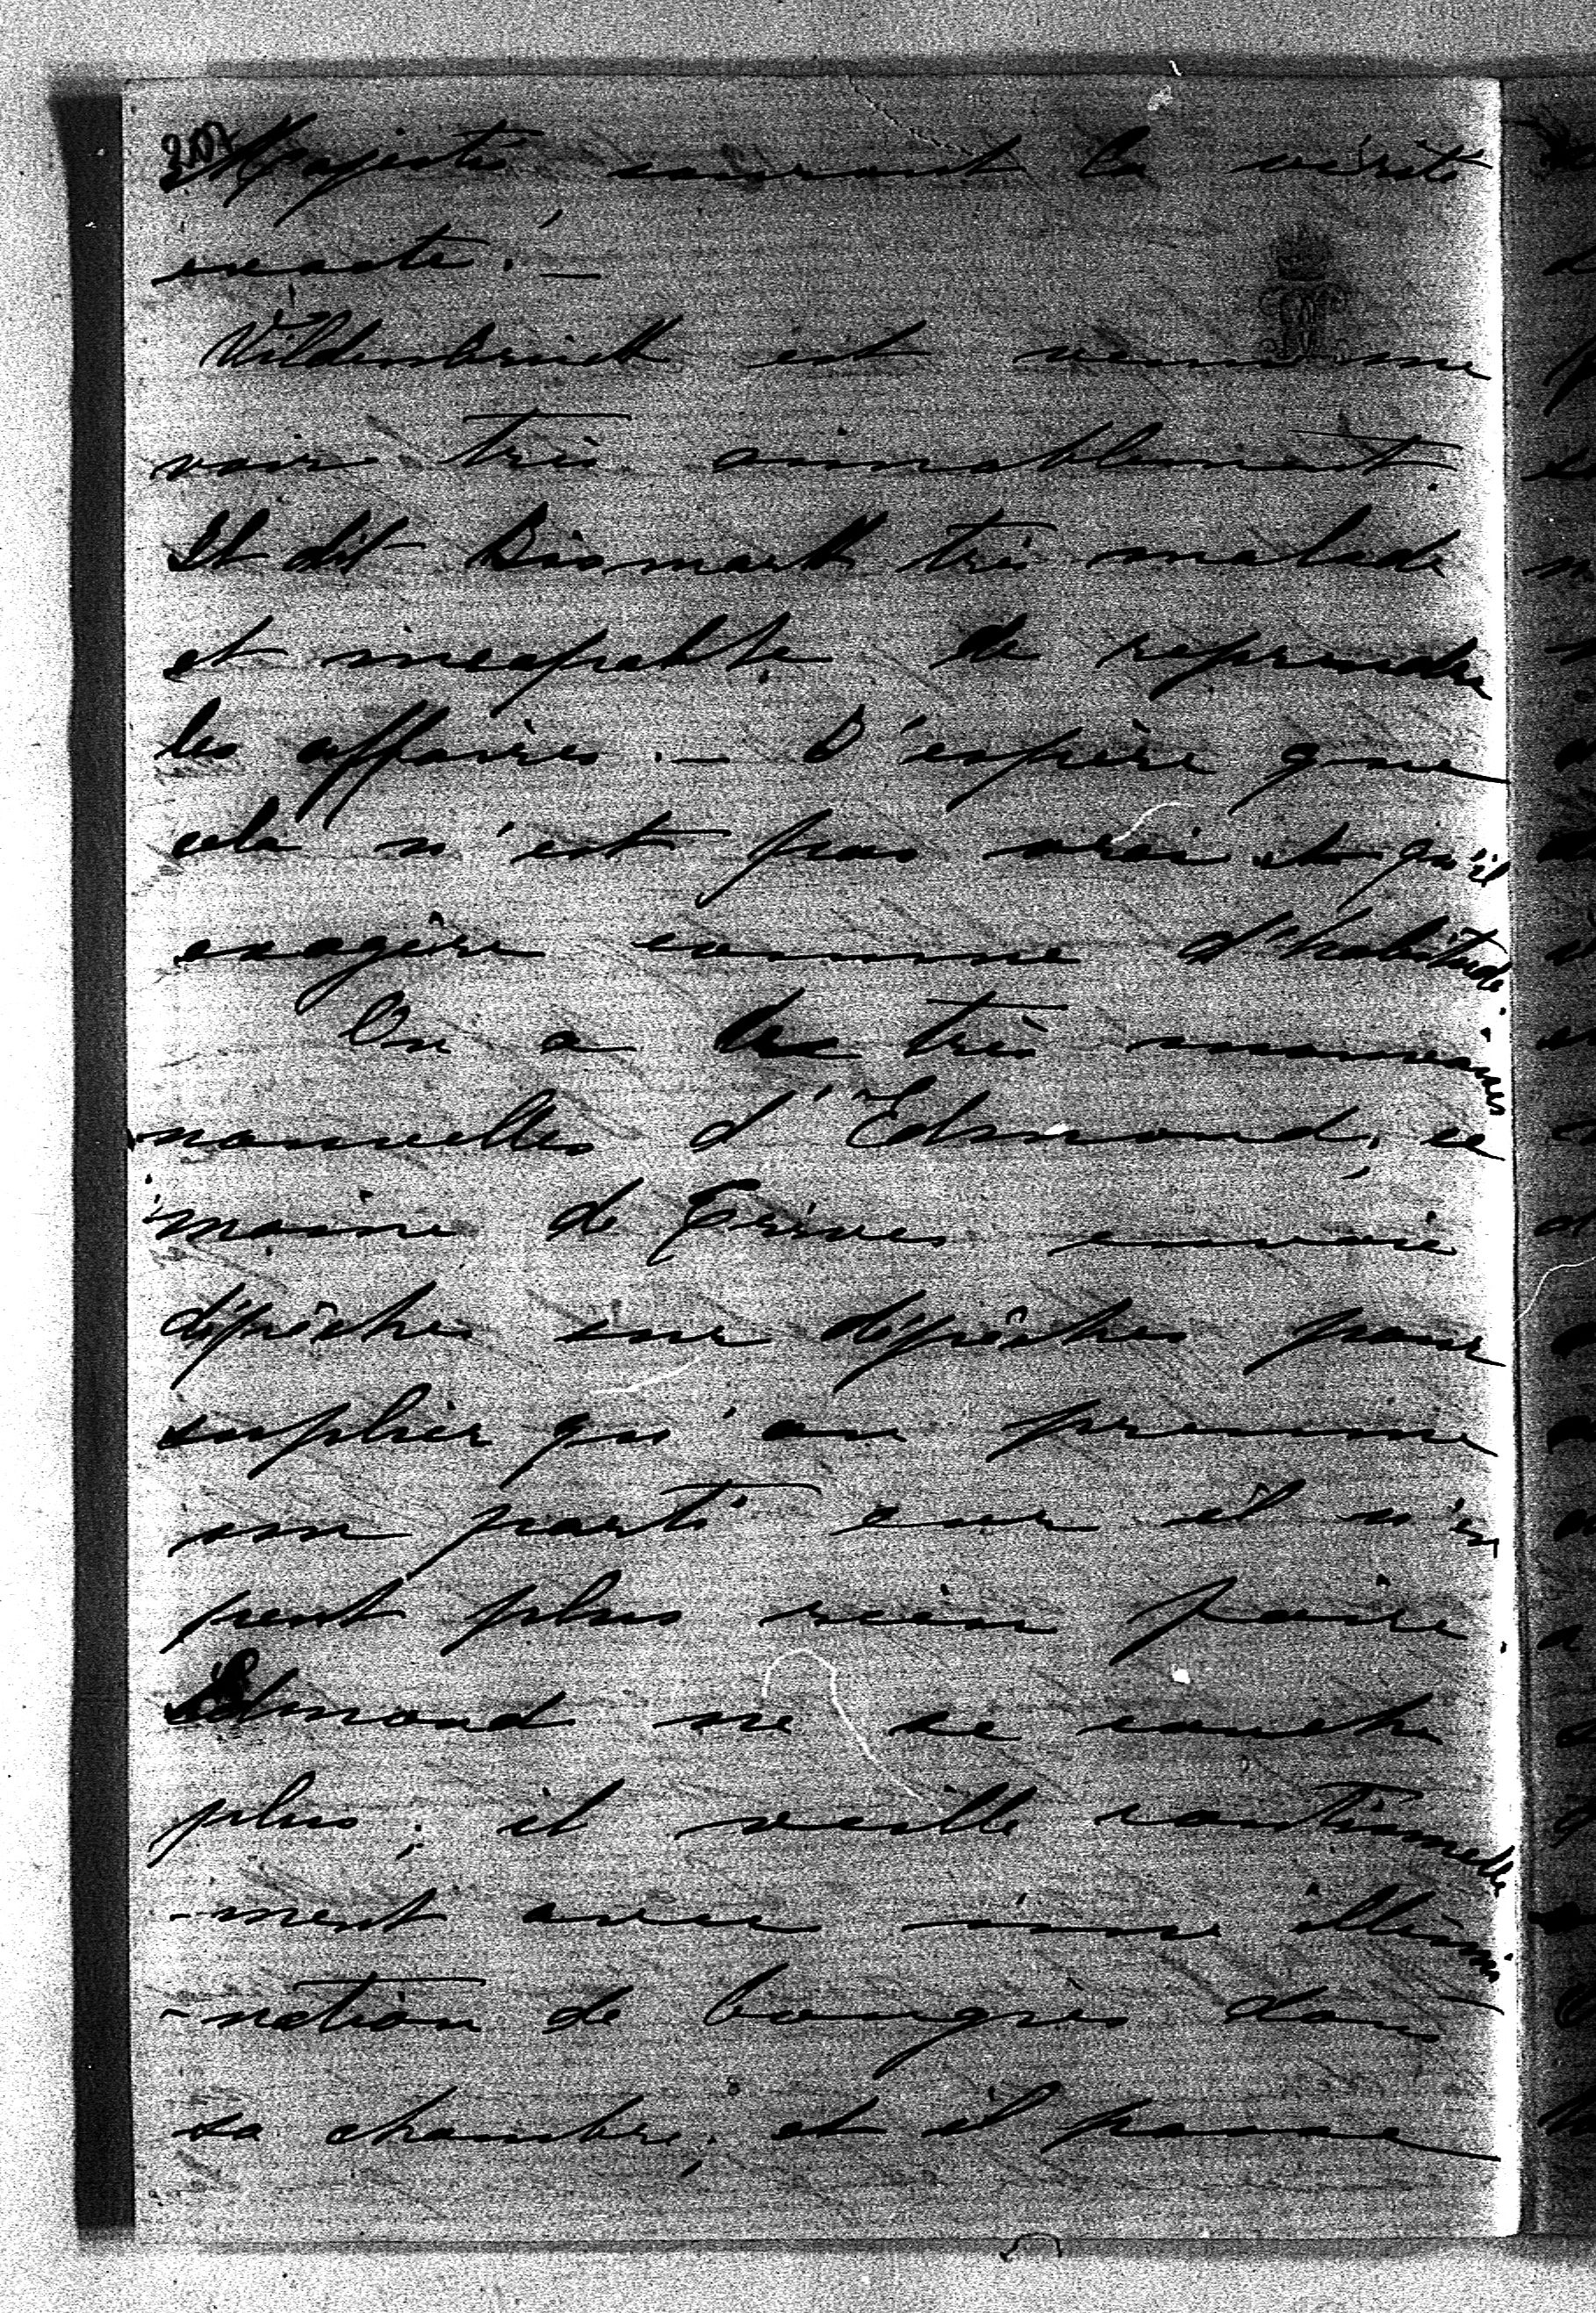 207
Majestés sauront la vérité
exacte. —
Wildenbruck est venu me
voir très aimablement.
Il dit Bismark très malade
et incapable de reprendre
les affaires. — J'espère que
cela n'est pas vrai et qu'il
exagère comme d'habitude
On a de très mauvaises
nouvelles d'Edmond, ce
moine de Trèves envoie
dépêches sur dépêches pour
suplier qu'on prenne
un parti car il n'en
peut plus rien faire.
Edmond ne se couche
plus; il veille continuelle
-ment avec une illumi
-nation de bougies dans
sa chambre, et il passe